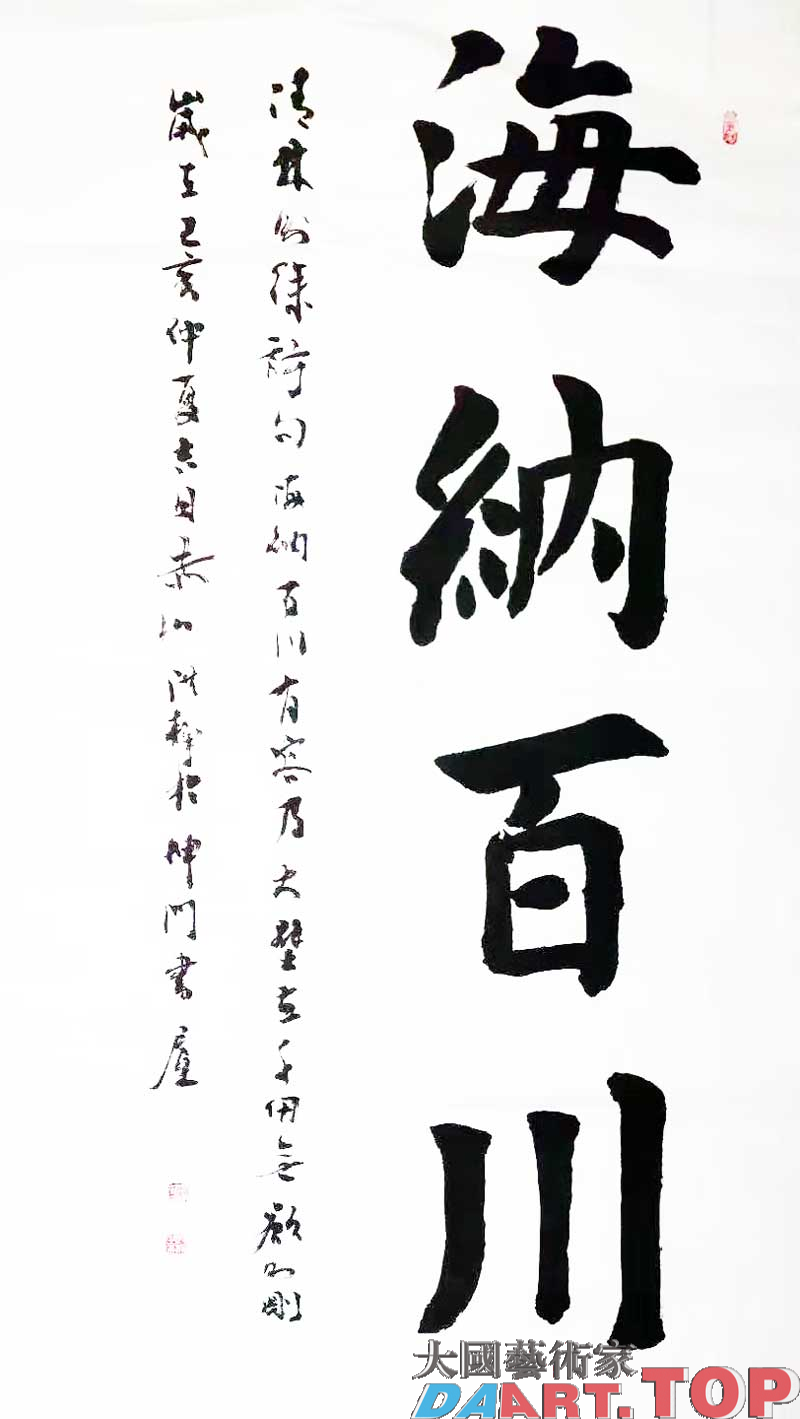 海納百川
清林則徐詩句海納百川有容乃大壁立千仞無欲則剛
歲在己亥仲夏吉日 於 門書屋
大國藝術家
DAART.TOP